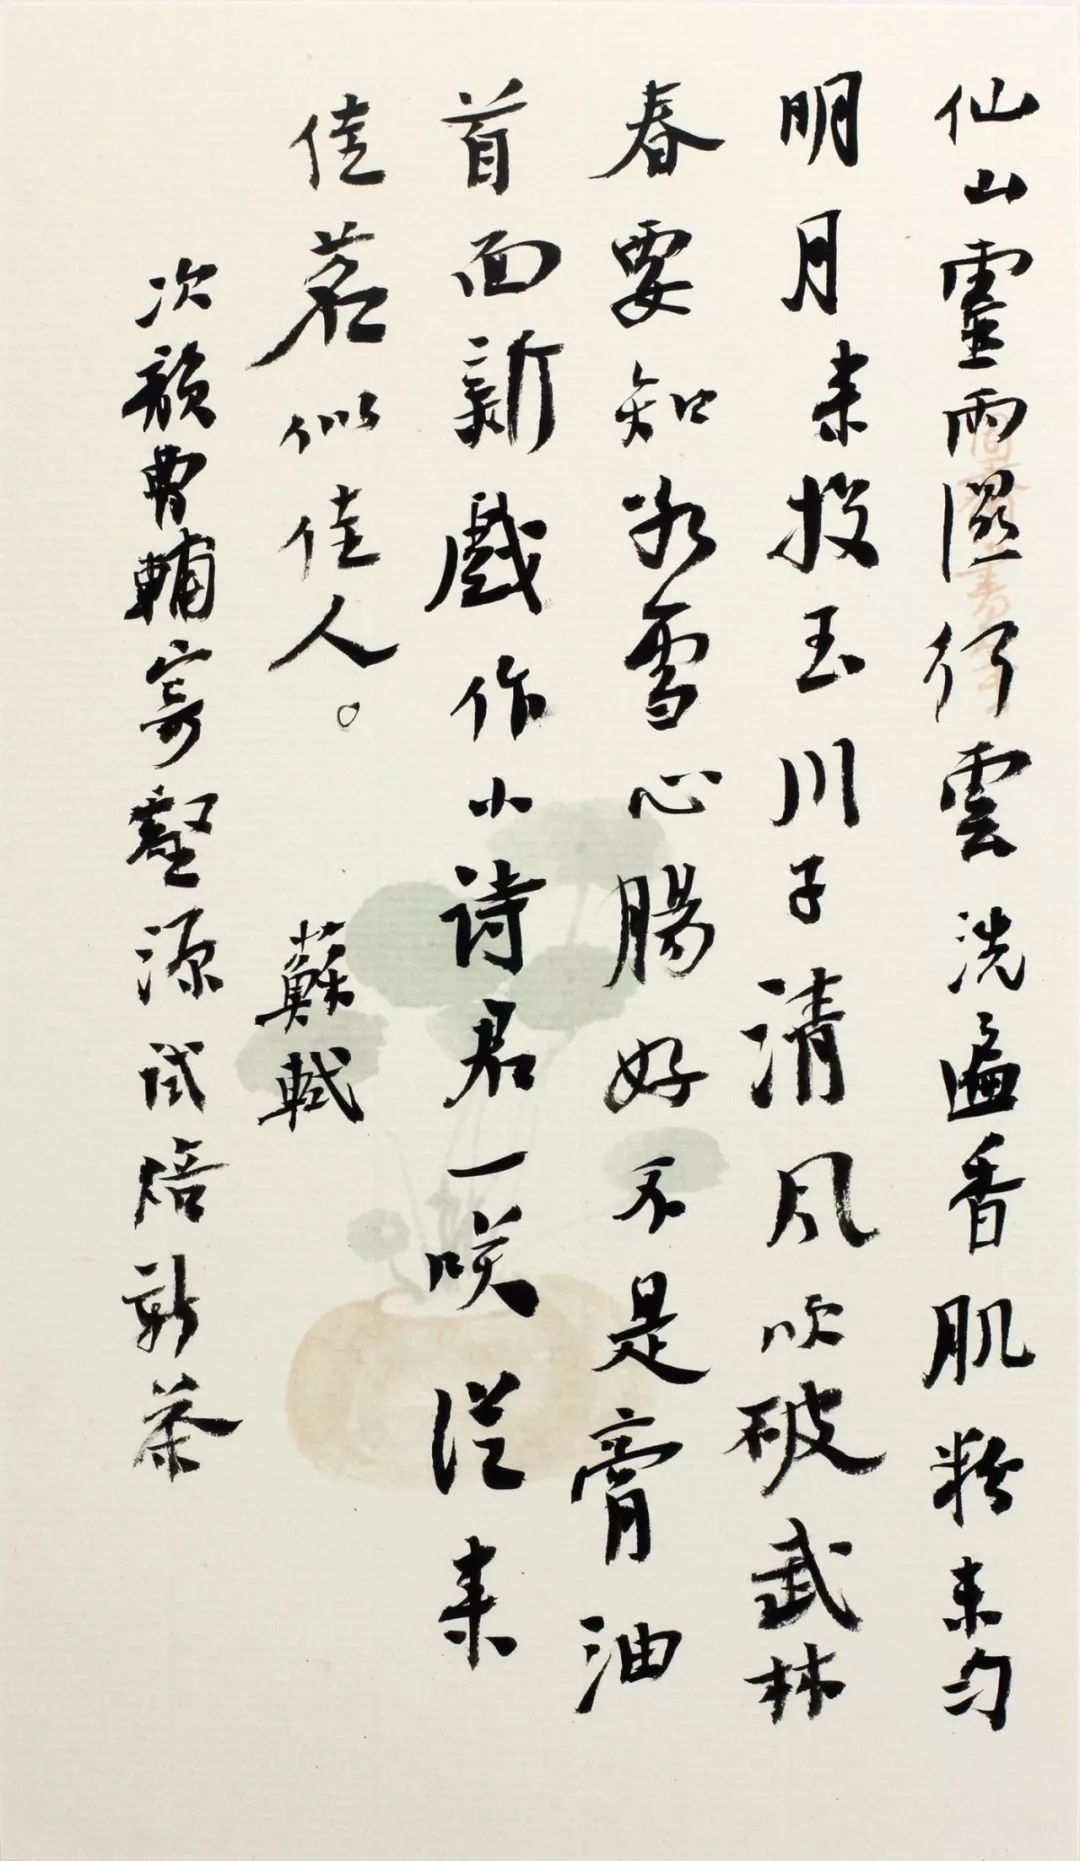 仙山靈雨濕行雲洗遍香肌粉未匀
明月来投玉川子清風吹破武林
春要知冰雪心腸好不是膏油
首面新戲作小詩君一咲從来
佳茗似佳人。 蘇軾
次韻曹輔寄壑源試焙新茶